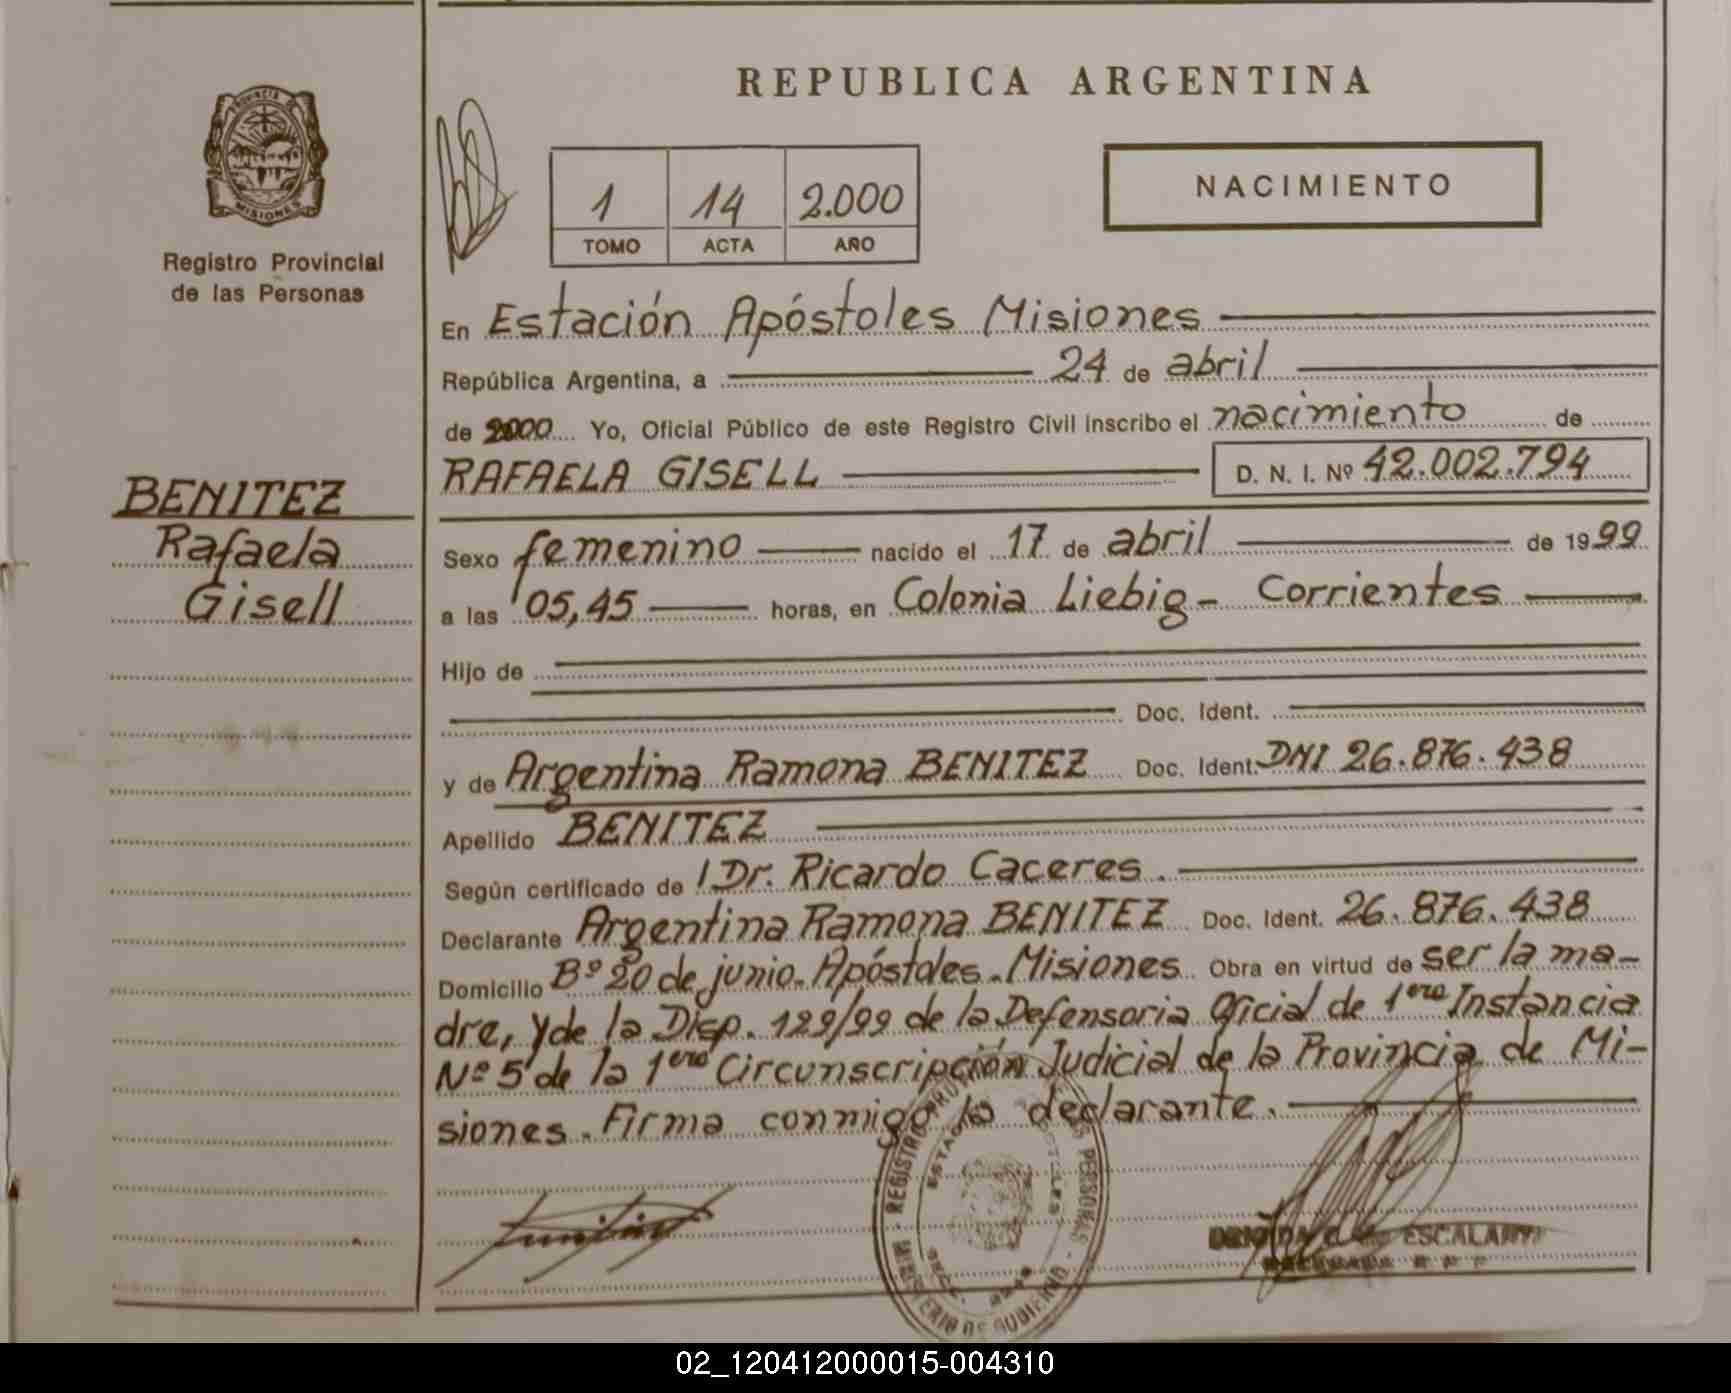 REPUBLICA ARGENTINA
PROVINCIA DE
MISIONES
Registro Provincial
de las Personas
1 14 2.000
TOMO ACTA AÑO
NACIMIENTO
En Estación Apóstoles Misiones
República Argentina, a 24 de abril
de 2000 Yo, Oficial Público de este Registro Civil inscribo el nacimiento de
RAFAELA GISELL D. N. I. Nº 42.002.794
BENITEZ
Rafaela
Gisell
Sexo femenino nacido el 17 de abril de 1999
a las 05,45 horas, en Colonia Liebig - Corrientes
Hijo de
Doc. Ident.
y de Argentina Ramona BENITEZ Doc. Ident. DNI 26.876.438
Apellido BENITEZ
Según certificado de / Dr. Ricardo Caceres.
Declarante Argentina Ramona BENITEZ Doc. Ident. 26.876.438
Domicilio Bº 20 de junio. Apóstoles. Misiones Obra en virtud de ser la ma-
dre, y de la Disp. 129/99 de la Defensoria Oficial de 1era Instancia
Nº 5 de la 1era Circunscripción Judicial de la Provincia de Mi-
siones. Firma conmigo la declarante.
REGISTRO PERSONAS
MINISTERIO DE GOBIERNO
ESCALANTE
02_120412000015-004310